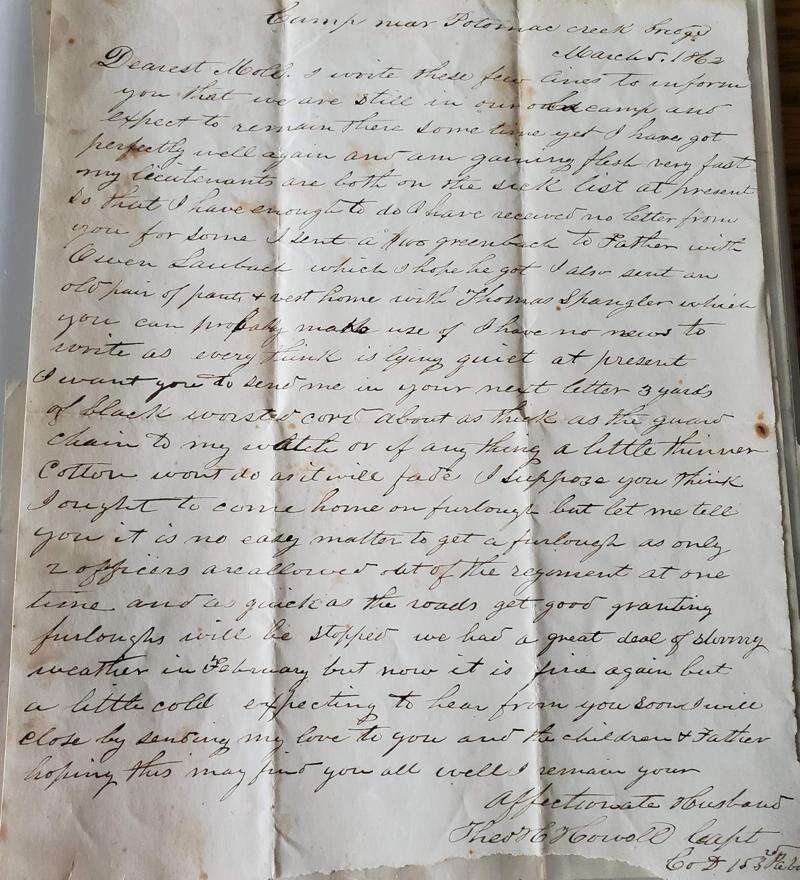 Camp near Potomac creek bridge
March 5. 1862
Dearest Moll. I write these few lines to inform
you that we are still in our old camp and
expect to remain there some time yet I have got
perfectly well again and am gaining flesh very fast
my lieutenants are both on the sick list at present
so that I have enough to do I have received no letter from
you for some I sent a $100 greenback to Father with
Owen Laubach which I hope he got I also sent an
old pair of pants & vest home with Thomas Spangler which
you can probably make use of I have no news to
write as every think is lying quiet at present
I want you to send me in your next letter 3 yards
of black worsted cord about as thick as the guard
chain to my watch or if any thing a little thinner
Cotton wont do as it will fade I suppose you think
I ought to come home on furlough but let me tell
you it is no easy matter to get a furlough as only
2 officers are allowed out of the regiment at one
time and as quick as the roads get good granting
furloughs will be stopped we had a great deal of stormy
weather in February but now it is fine again but
a little cold expecting to hear from you soon I will
close by sending my love to you and the children & Father
hoping this may find you all well I remain your
Affectionate Husband
Theo H Howell Capt
Co D 153rd